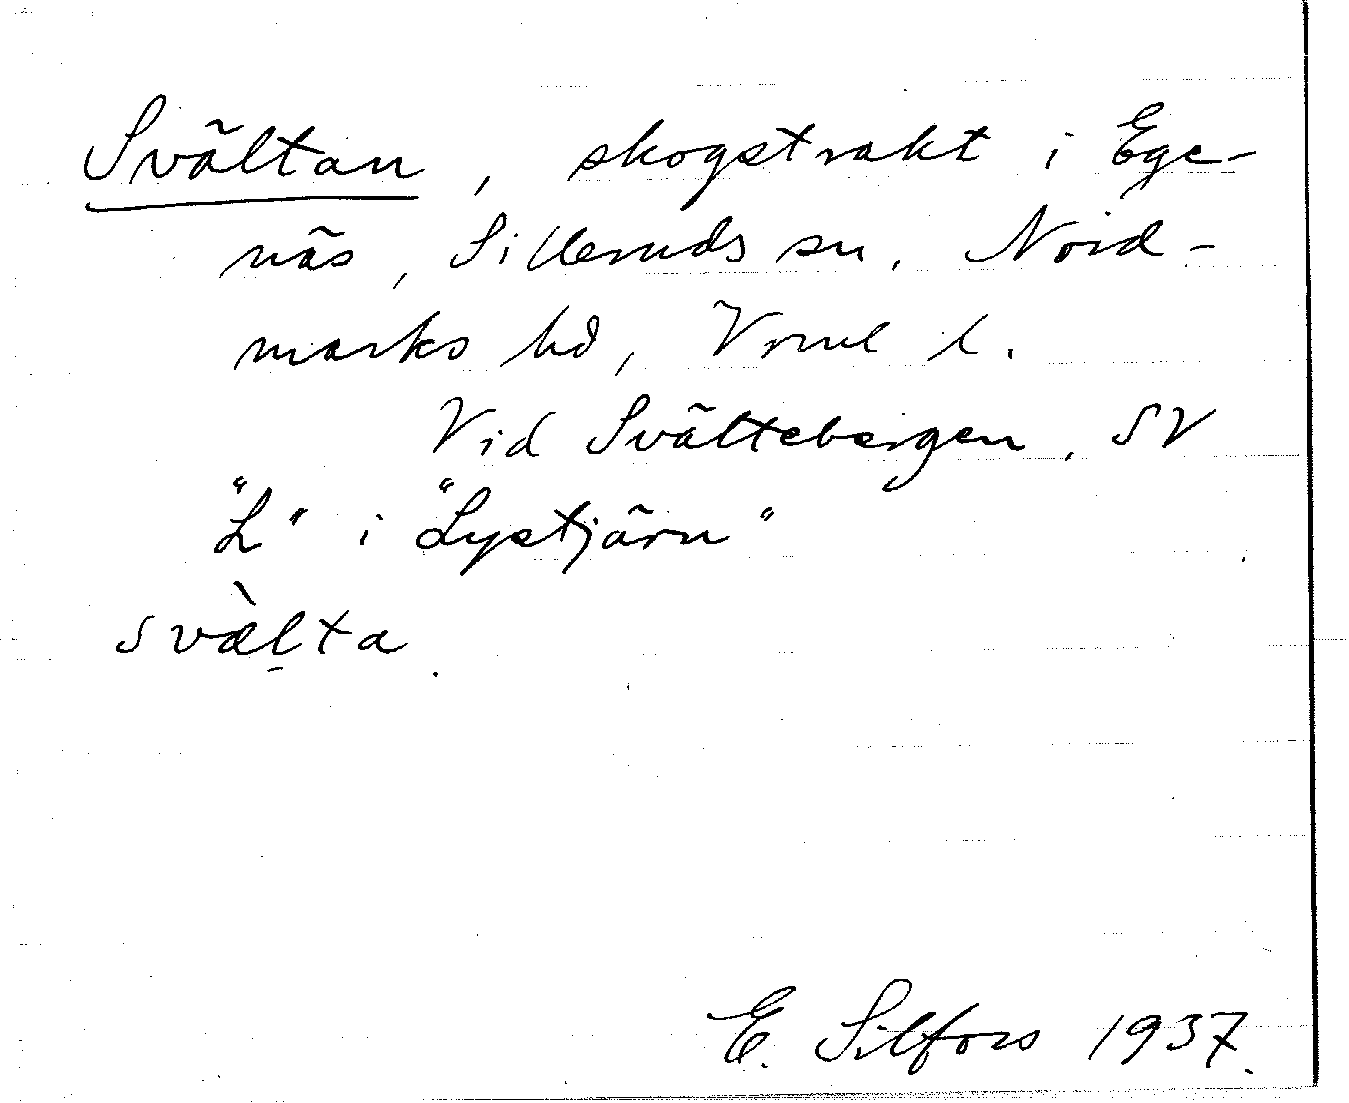 Svältan, skogstrakt i Ege-
näs, Silleruds sn. Nord-
marks hd, Vrml l.
Vid Svältebergen, SV
"L" i "Lystjärn"
svæ̀l̠ta
E. Silfors 1937.